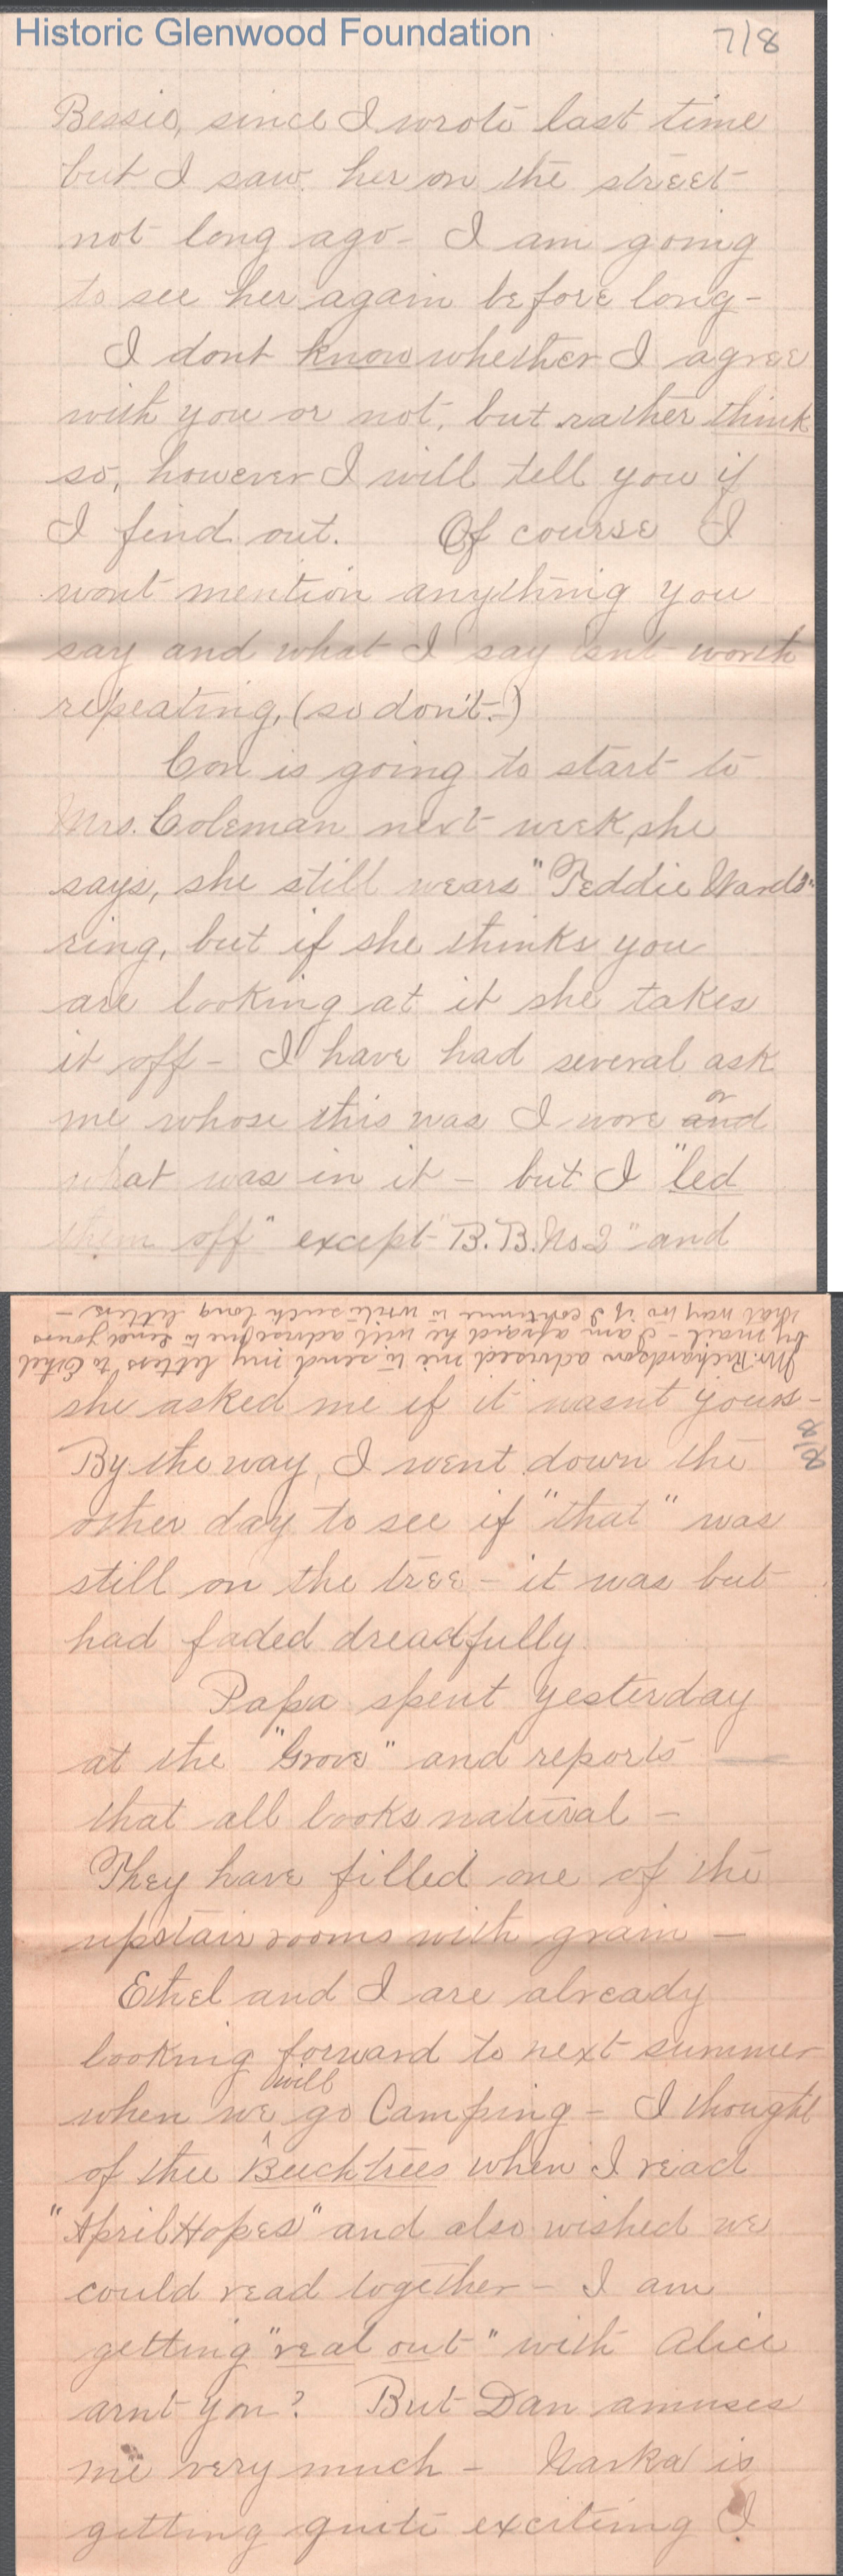 Historic Glenwood Foundation
7/8
Bessie, since I wrote last time
but I saw her on the street
not long ago - I am going
to see her again before long -
I dont know whether I agree
with you or not, but rather think
so, however I will tell you if
I find out. Of course I
wont mention anything you
say and what I say isnt worth
repeating, (so don't.)
Con is going to start to
Mrs. Coleman next week, she
says, she still wears "Teddie Wards"
ring, but if she thinks you
are looking at it she takes
it off - I have had several ask
me whose this was I wore and or
what was in it - but I "led
them off" except "B.B. No 2" and
Mr. Richardson advised me to send my letters to Ethel
by mail - I am afraid he will advise me to send yours
that way too if I continue to write such long letters -
she asked me if it wasnt yours -
8/8
By the way, I went down the
other day to see if "that" was
still on the tree - it was but
had faded dreadfully.
Papa spent yesterday
at the "Grove" and reports
that all looks natural -
They have filled one of the
upstair rooms with grain -
Ethel and I are already
looking forward to next summer
when we will go Camping - I thought
of thee Beech trees when I read
"April Hopes" and also wished we
could read together - I am
getting "real out" with Alice
arnt you? But Dan amuses
me very much - Narka is
getting quite exciting I